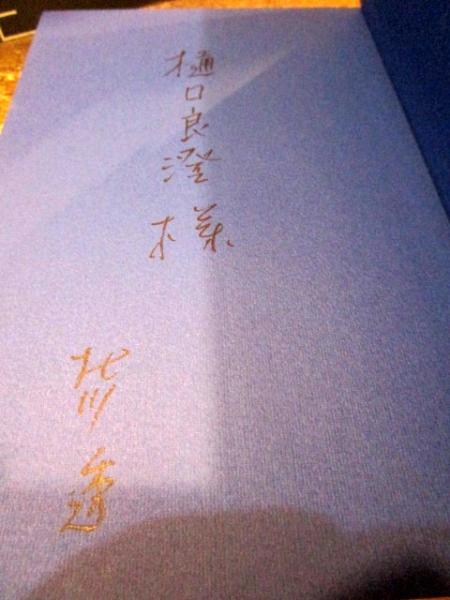 樋口良澄様
北川透